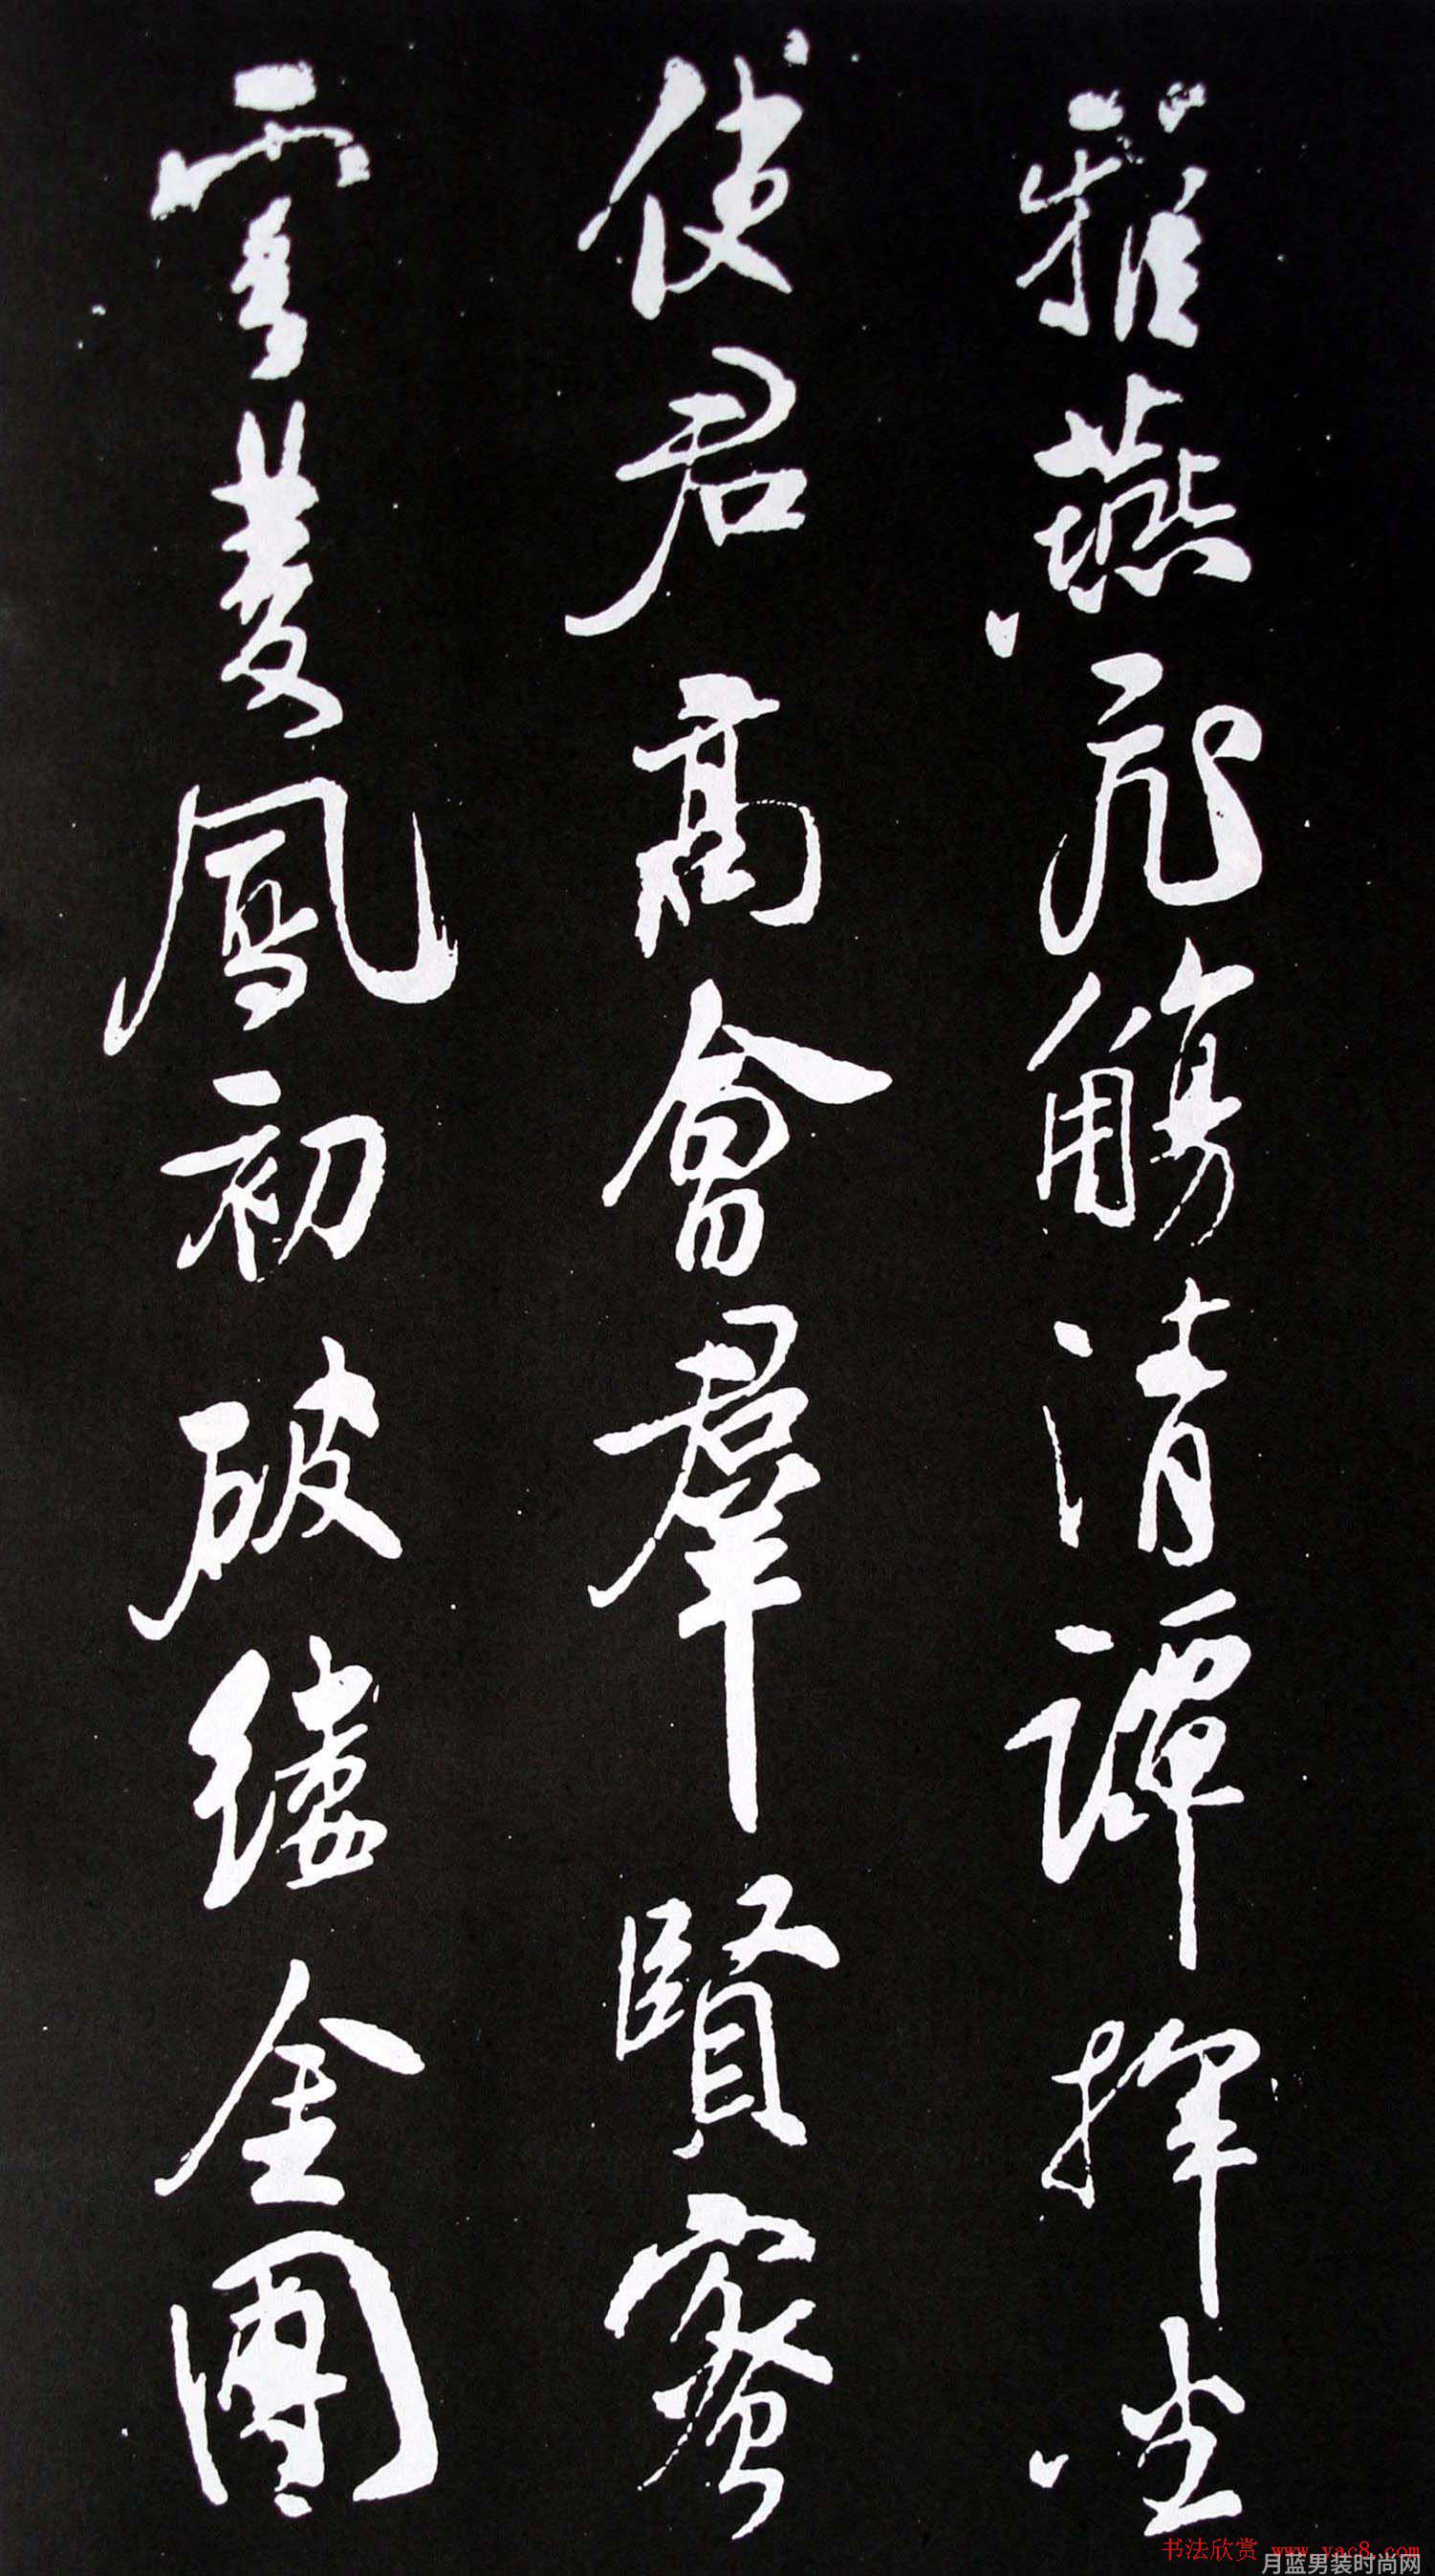 雅燕飛觴清譚揮坐
使君高會羣賢密
雲雙鳳初破縷金團
书法欣赏 www.yac8.com
月蓝男装时尚网